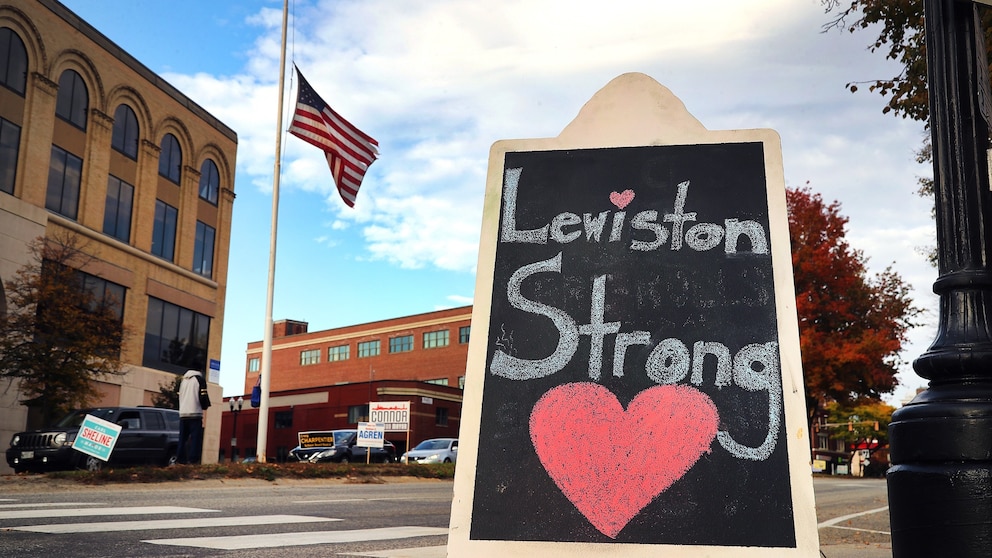 Lewiston
Strong
SHELINE
CHARPENTIER
CONNOR
MAYOR
AGREN